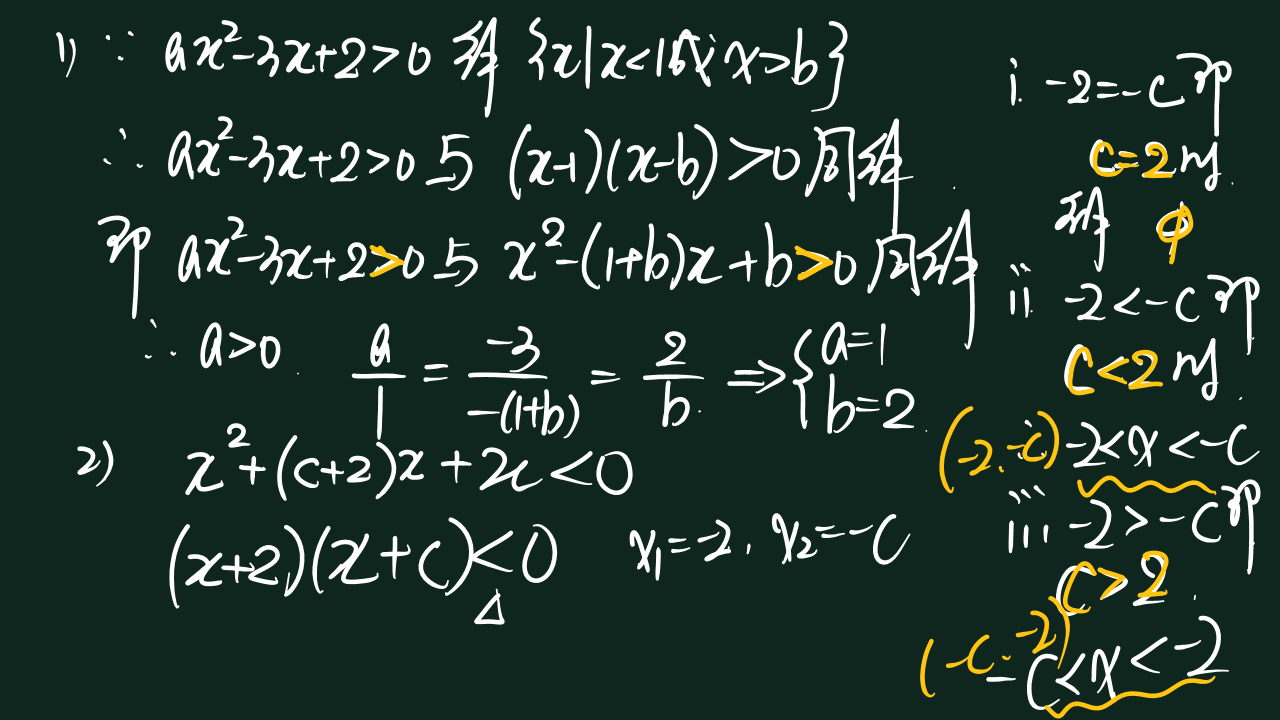 1) ∵ ax²-3x+2>0 解 {x|x<1或x>b}
∴ ax²-3x+2>0 与 (x-1)(x-b)>0 同解
即 ax²-3x+2>0 与 x²-(1+b)x+b>0 同解
∴ a>0. a/1 = -3/-(1+b) = 2/b. ⇒ { a=1 b=2.
2) x²+(c+2)x+2c<0
(x+2)(x+c)<0 x₁=-2, x₂=-c
△
i. -2=-c 即
c=2时.
解 φ
ii -2<-c 即
c<2时.
(-2,-c) -2<x<-c
iii -2>-c 即
c>2.
(-c,-2) -c<x<-2